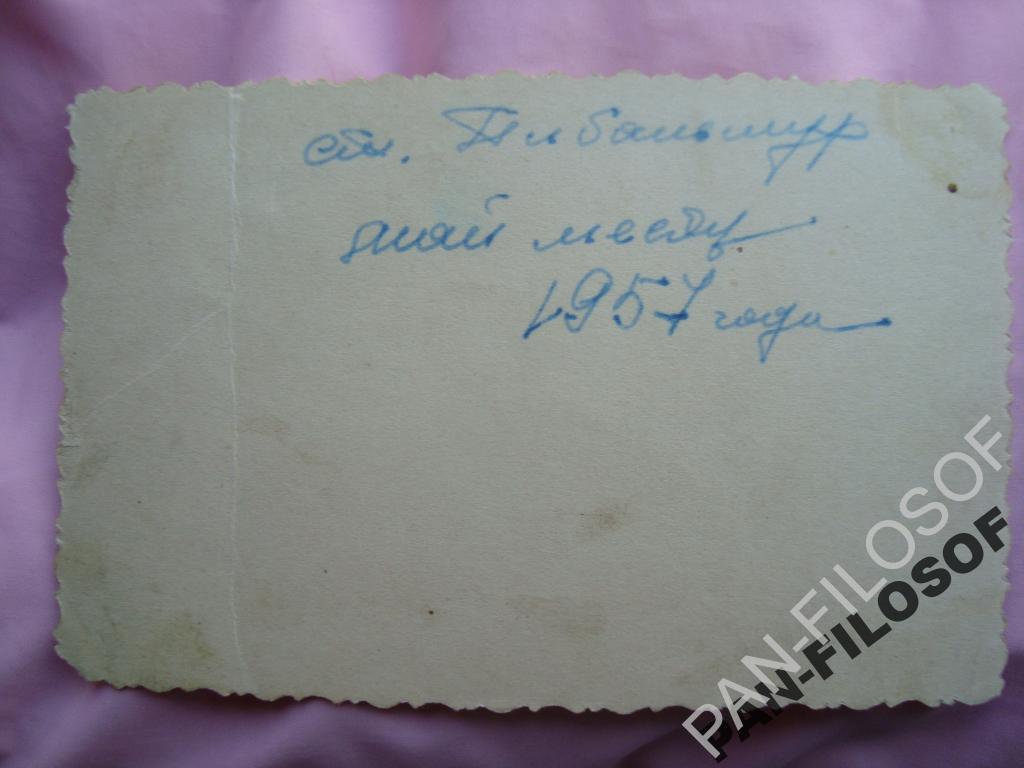 ст.
май месяц
1957 года
PAN-FILOSOF
PAN-FILOSOF